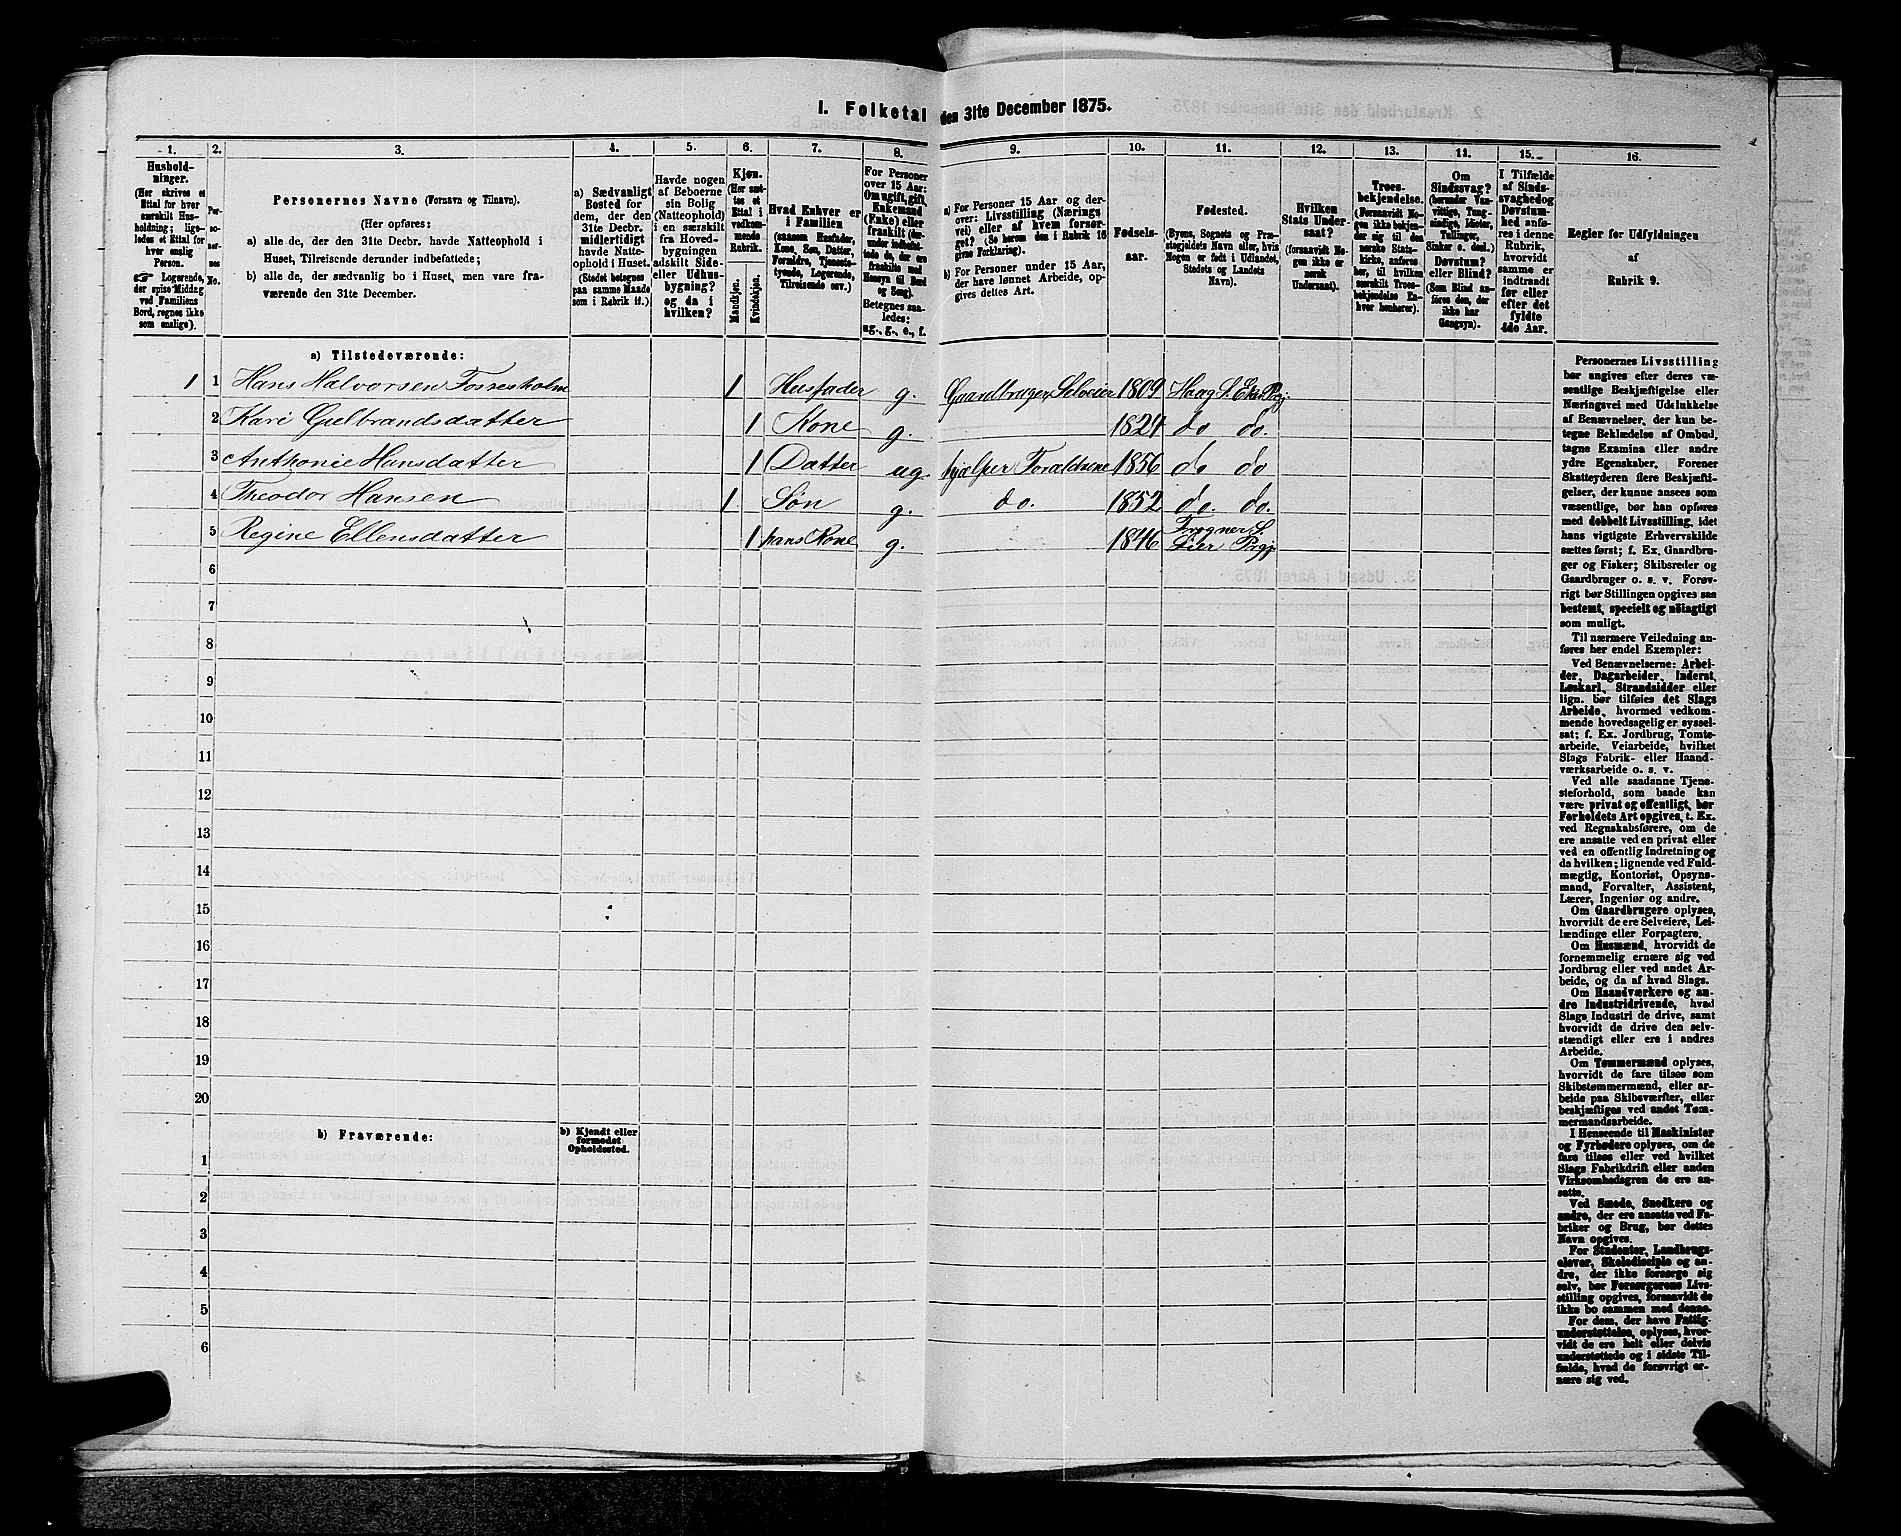 I. Folketal den 31te December 1875.
1. 2. 3. 4. 5. 6. 7. 8. 9. 10. 11. 12. 13. 14. 15. 16.
Hushold-
ninger.
(Her skrives et
Ettal for hver
særskilt Hus-
holdning; lige-
ledes et Ettal for
hver enslig
Person.
☞ Logerende,
der spise Middag
ved Familiens
Bord, regnes ikke
som enslige).
Per-
so-
ner-
nes
No.
Personernes Navne (Fornavn og Tilnavn).
(Her opføres:
a) alle de, der den 31te Decbr. havde Natteophold i
Huset, Tilreisende derunder indbefattede;
b) alle de, der sædvanlig bo i Huset, men vare fra-
værende den 31te December.
a) Sædvanligt
Bosted for
dem, der den
31te Decbr.
midlertidigt
havde Natte-
ophold i Huset.
(Stedet betegnes
paa samme Maade
som i Rubrik 11.)
Havde nogen
af Beboerne
sin Bolig
(Natteophold)
i en særskilt
fra Hoved-
bygningen
adskilt Side-
eller Udhus-
bygning?
og da i
hvilken?
Kjøn.
(Her sæt-
tes et
Ettal i
vedkom-
mende
Rubrik.
Mandkjøn.
Kvindekjøn.
Hvad Enhver er
i Familien
(saasom Husfader,
Kone, Søn, Datter,
Forældre, Tjeneste-
tyende, Logerende,
Tilreisende osv.)
For Personer
over 15 Aar:
Om ugift, gift,
Enkemand
(Enke) eller
fraskilt (der-
under indbefat-
tede de, der ere
fraskilte med
Hensyn til Bord
og Seng).
Betegnes saa-
ledes:
ug., g., e., f.
a) For Personer 15 Aar og der-
over: Livsstilling (Nærings
vei) eller af hvem forsør-
get? (Se herom den i Rubrik 16
givne Forklaring).
b) For Personer under 15 Aar,
der have lønnet Arbeide, op-
gives dettes Art.
Fødsels-
aar.
Fødested.
(Byens, Sognets og Præ-
stegjeldets Navn eller, hvis
Nogen er født i Udlandet,
Stedets og Landets
Navn).
Hvilken
Stats Under-
saat?
(forsaavidt No-
gen ikke er
norsk
Undersaat).
Troes-
bekjendelse.
(Forsaavidt No-
gen ikke bekjen-
der sig til den
norske Stats-
kirke, anføres
her, til hvilken
særskilt Troes-
bekjendelse En-
hver henhører).
Om
Sindssvag?
(herunder Van-
vittige, Tung-
sindige, Idioter,
Tullinger,
Sinker o. desl.)
Døvstum?
eller Blind?
(Som Blind an-
føres den, der
ikke har
Gangsyn).
I Tilfælde
af Sinds-
svaghed og
Døvstum-
hed anfø-
res i denne
Rubrik,
hvorvidt
samme er
indtraadt
før eller
efter det
fyldte
4de Aar.
Regler for Udfyldningen
af
Rubrik 9.
a) Tilstedeværende:
1 1 Hans Halvorsen Fossesholm 1 Husfader g. Gaardbruger, Selveier 1809 Haug S. Eker Prgj.
2 Kari Gulbrandsdatter 1 Kone g. 1824 do do.
3 Anthonie Hansdatter 1 Datter ug. hjælper Forældrene 1856 do do
4 Theodor Hansen 1 Søn g. do. 1852 do. do.
5 Regine Ellensdatter 1 hans Kone g. 1846 Frogner S.
Lier Prgj.
6
7
8
9
10
11
12
13
14
15
16
17
18
19
20
b) Fraværende:
b) Kjendt eller
formodet
Opholdssted.
1
2
3
4
5
6
Personernes Livsstilling
bør angives efter deres væ-
sentlige Beskjæftigelse eller
Næringsvei med Udelukkelse
af Benævnelser, der kun be-
tegne Beklædelse af Ombud,
tagne Examina eller andre
ydre Egenskaber. Forener
Skatteyderen flere Beskjæfti-
gelser, der kunne ansees som
væsentlige, bør han opføres
med dobbelt Livsstilling, idet
hans vigtigste Erhvervskilde
sættes først; f. Ex. Gaardbru-
ger og Fisker; Skibsreder og
Gaardbruger o. s. v. Forøv-
rigt bør Stillingen opgives saa
bestemt, specielt og nöiagtigt
som muligt.
Til nærmere Veiledning an-
føres her endel Exempler:
Ved Benævnelserne: Arbei-
der, Dagarbeider, Inderst,
Løskarl, Strandsidder eller
lign. bør tilføies det Slags
Arbeide, hvormed vedkom-
mende hovedsagelig er syssel-
sat; f. Ex. Jordbrug, Tomte-
arbeide, Veiarbeide, hvilket
Slags Fabrik- eller Haand-
værksarbeide o. s. v.
Ved alle saadanne Tjene-
steforhold, som baade kan
være privat og offentligt, bør
Forholdets Art opgives, t. Ex.
ved Regnskabsførere, om de
ere ansatte ved en privat eller
ved en offentlig Indretning og
da hvilken; lignende ved Fuld-
mægtig, Kontorist, Opsyns-
mand, Forvalter, Assistent,
Lærer, Ingeniør og andre.
Om Gaardbrugere oplyses,
hvorvidt de ere Selveiere, Lei-
lændinge eller Forpagtere.
Om Husmænd, hvorvidt de
fornemmelig ernære sig ved
Jordbrug eller ved andet Ar-
beide, og da af hvad Slags.
Om Haandværkere og an-
dre Industridrivende, hvad
Slags Industri de drive, samt
hvorvidt de drive den selv-
stændigt eller ere i andres
Arbeide.
Om Tømmermænd oplyses,
hvorvidt de fare tilsøs som
Skibstømmermænd, eller ar-
beide paa Skibsværfter, eller
beskjæftiges ved andet Tøm-
mermandsarbeide.
I Henseende til Maskinister
og Fyrbødere oplyses, om de
fare tilsøs eller ved hvilket
Slags Fabrikdrift eller anden
Virksomhedsgren de ere an-
satte.
Ved Smede, Snedkere og
andre, der ere ansatte ved Fa-
briker og Brug, bør dettes
Navn opgives.
For Studenter, Landbrugs-
elever, Skoledisciple og an-
dre, der ikke forsørge sig
selv, bør Forsørgerens Livs-
stilling opgives, forsaavidt de
ikke bo sammen med denne.
For dem, der have Fattig-
understøttelse, oplyses, hvor-
vidt de ere helt eller delvis
understøttede og i sidste Til-
fælde, hvad de forøvrigt er-
nære sig ved.